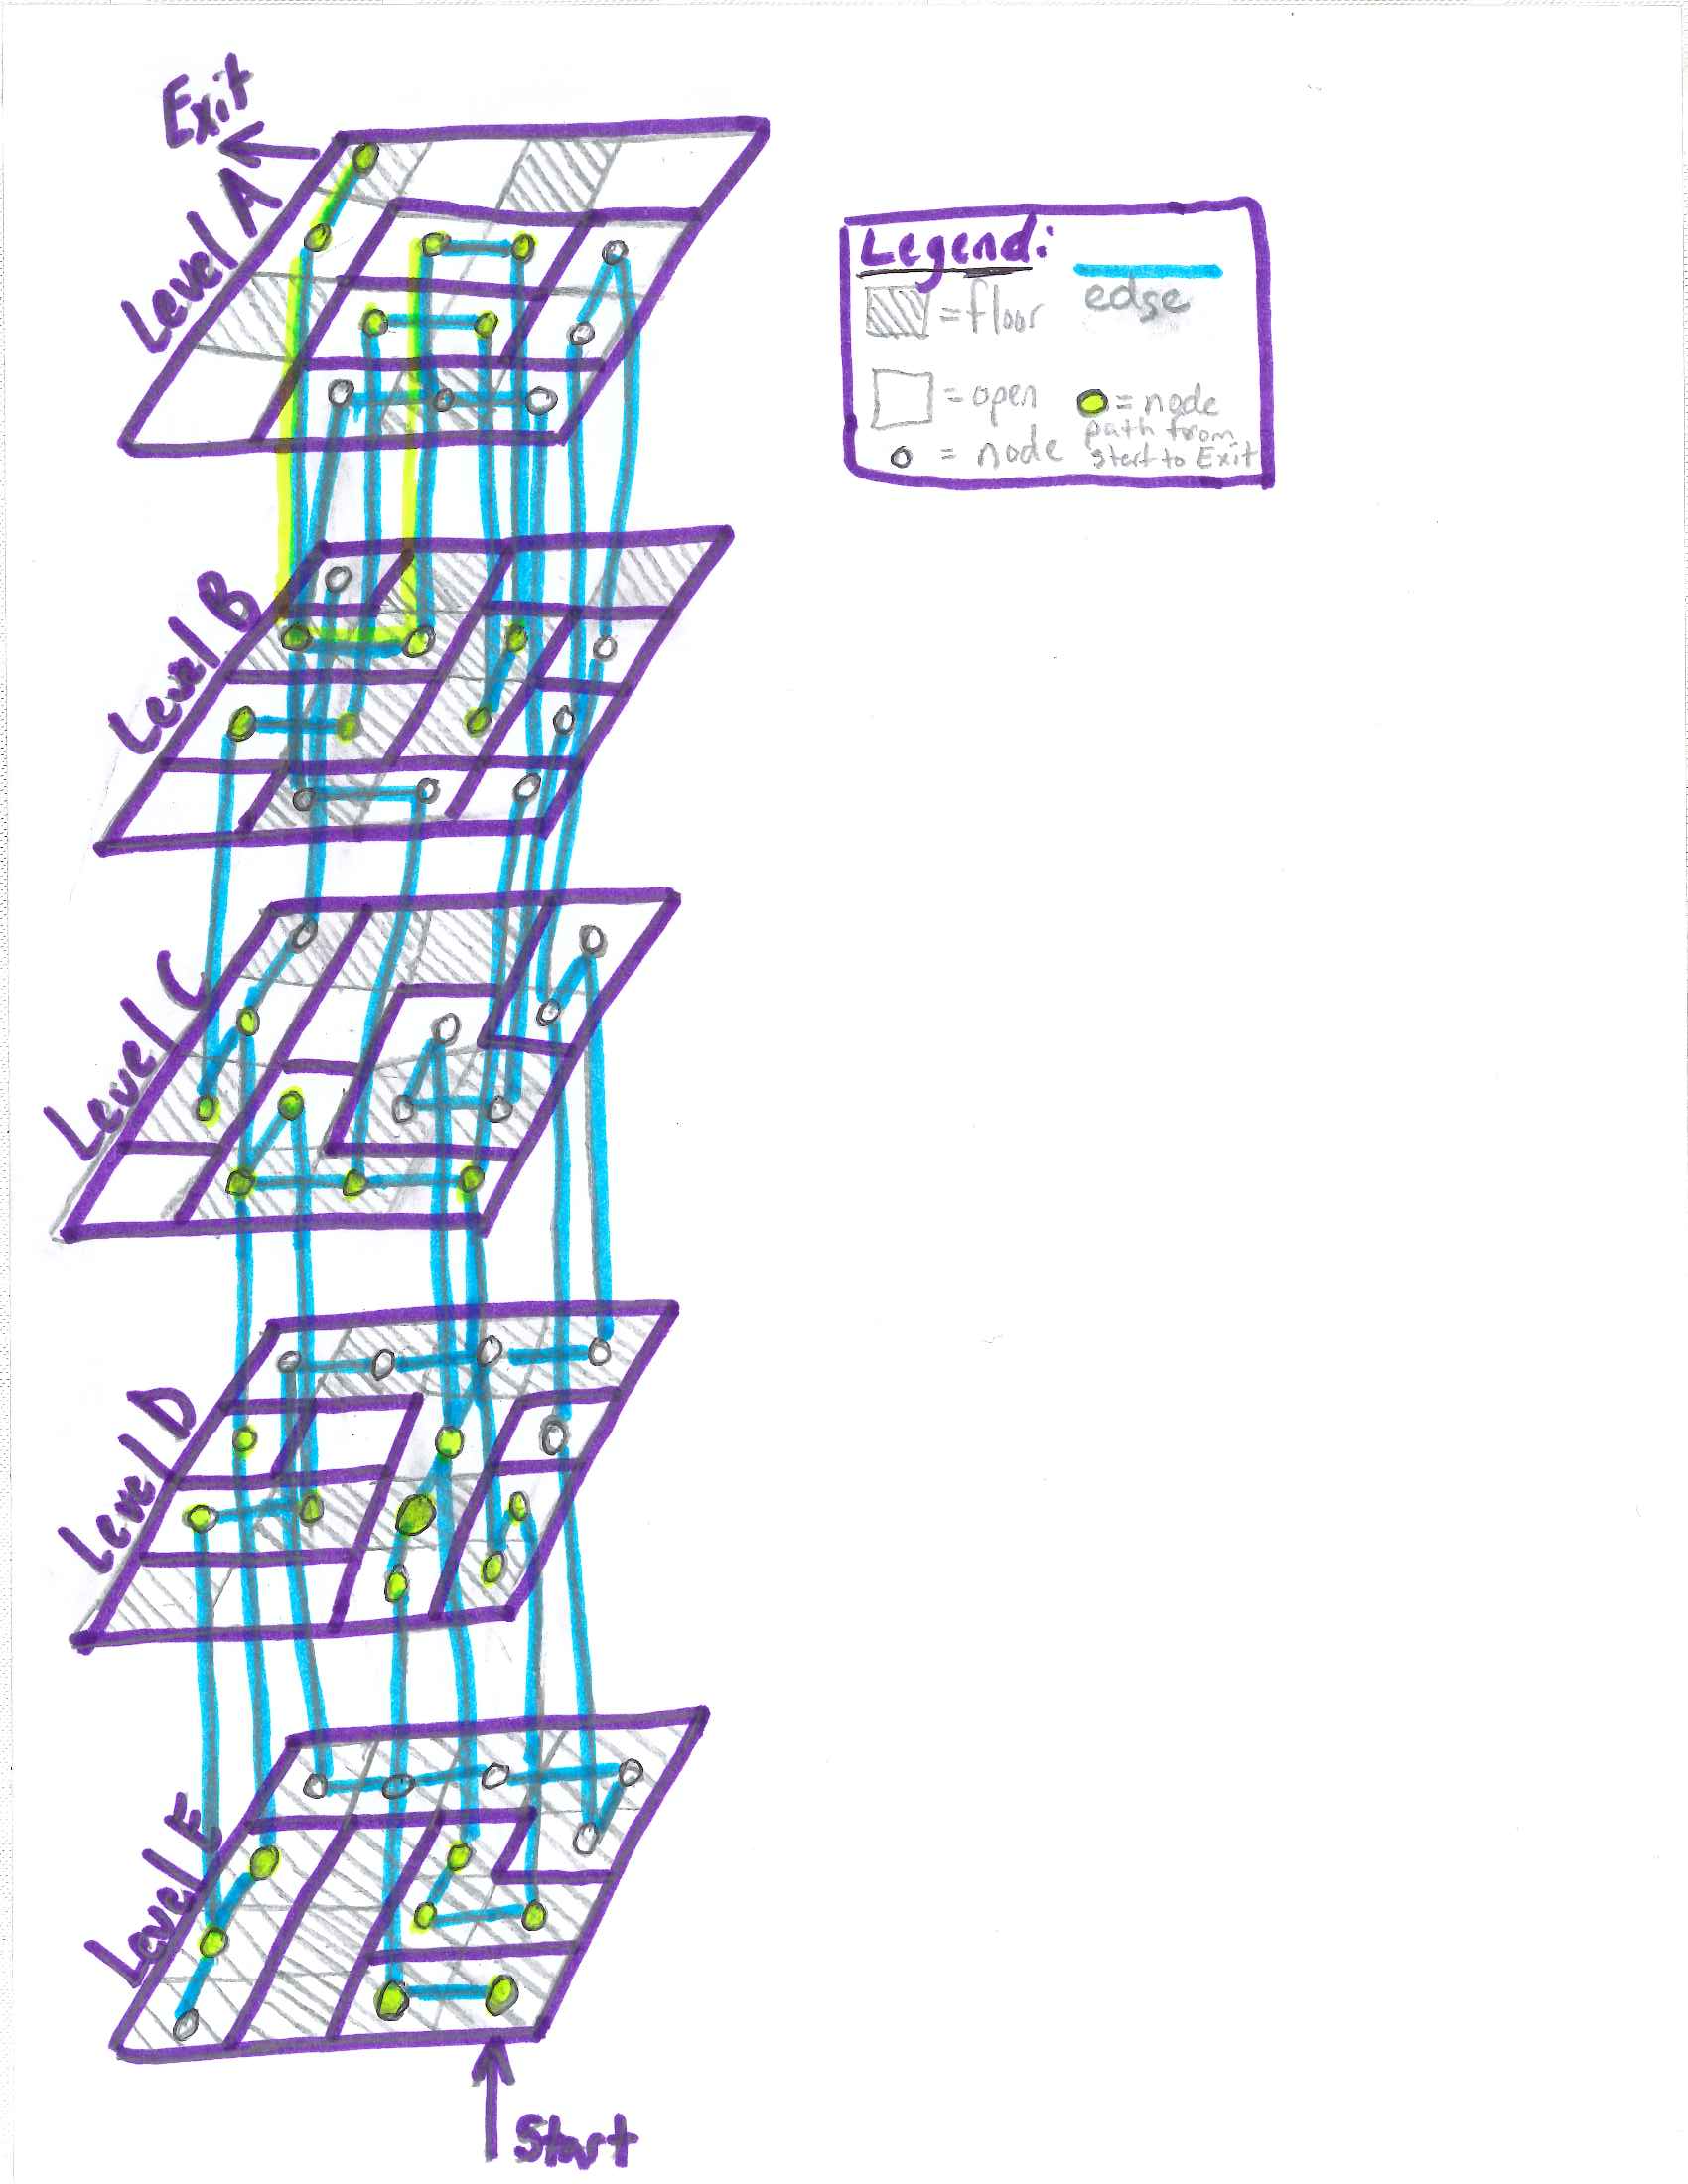 Exit
Level A
Legend:
= floor
edge
= open
= node
= node
path from
start to Exit
Level B
Level C
Level D
Level E
Start